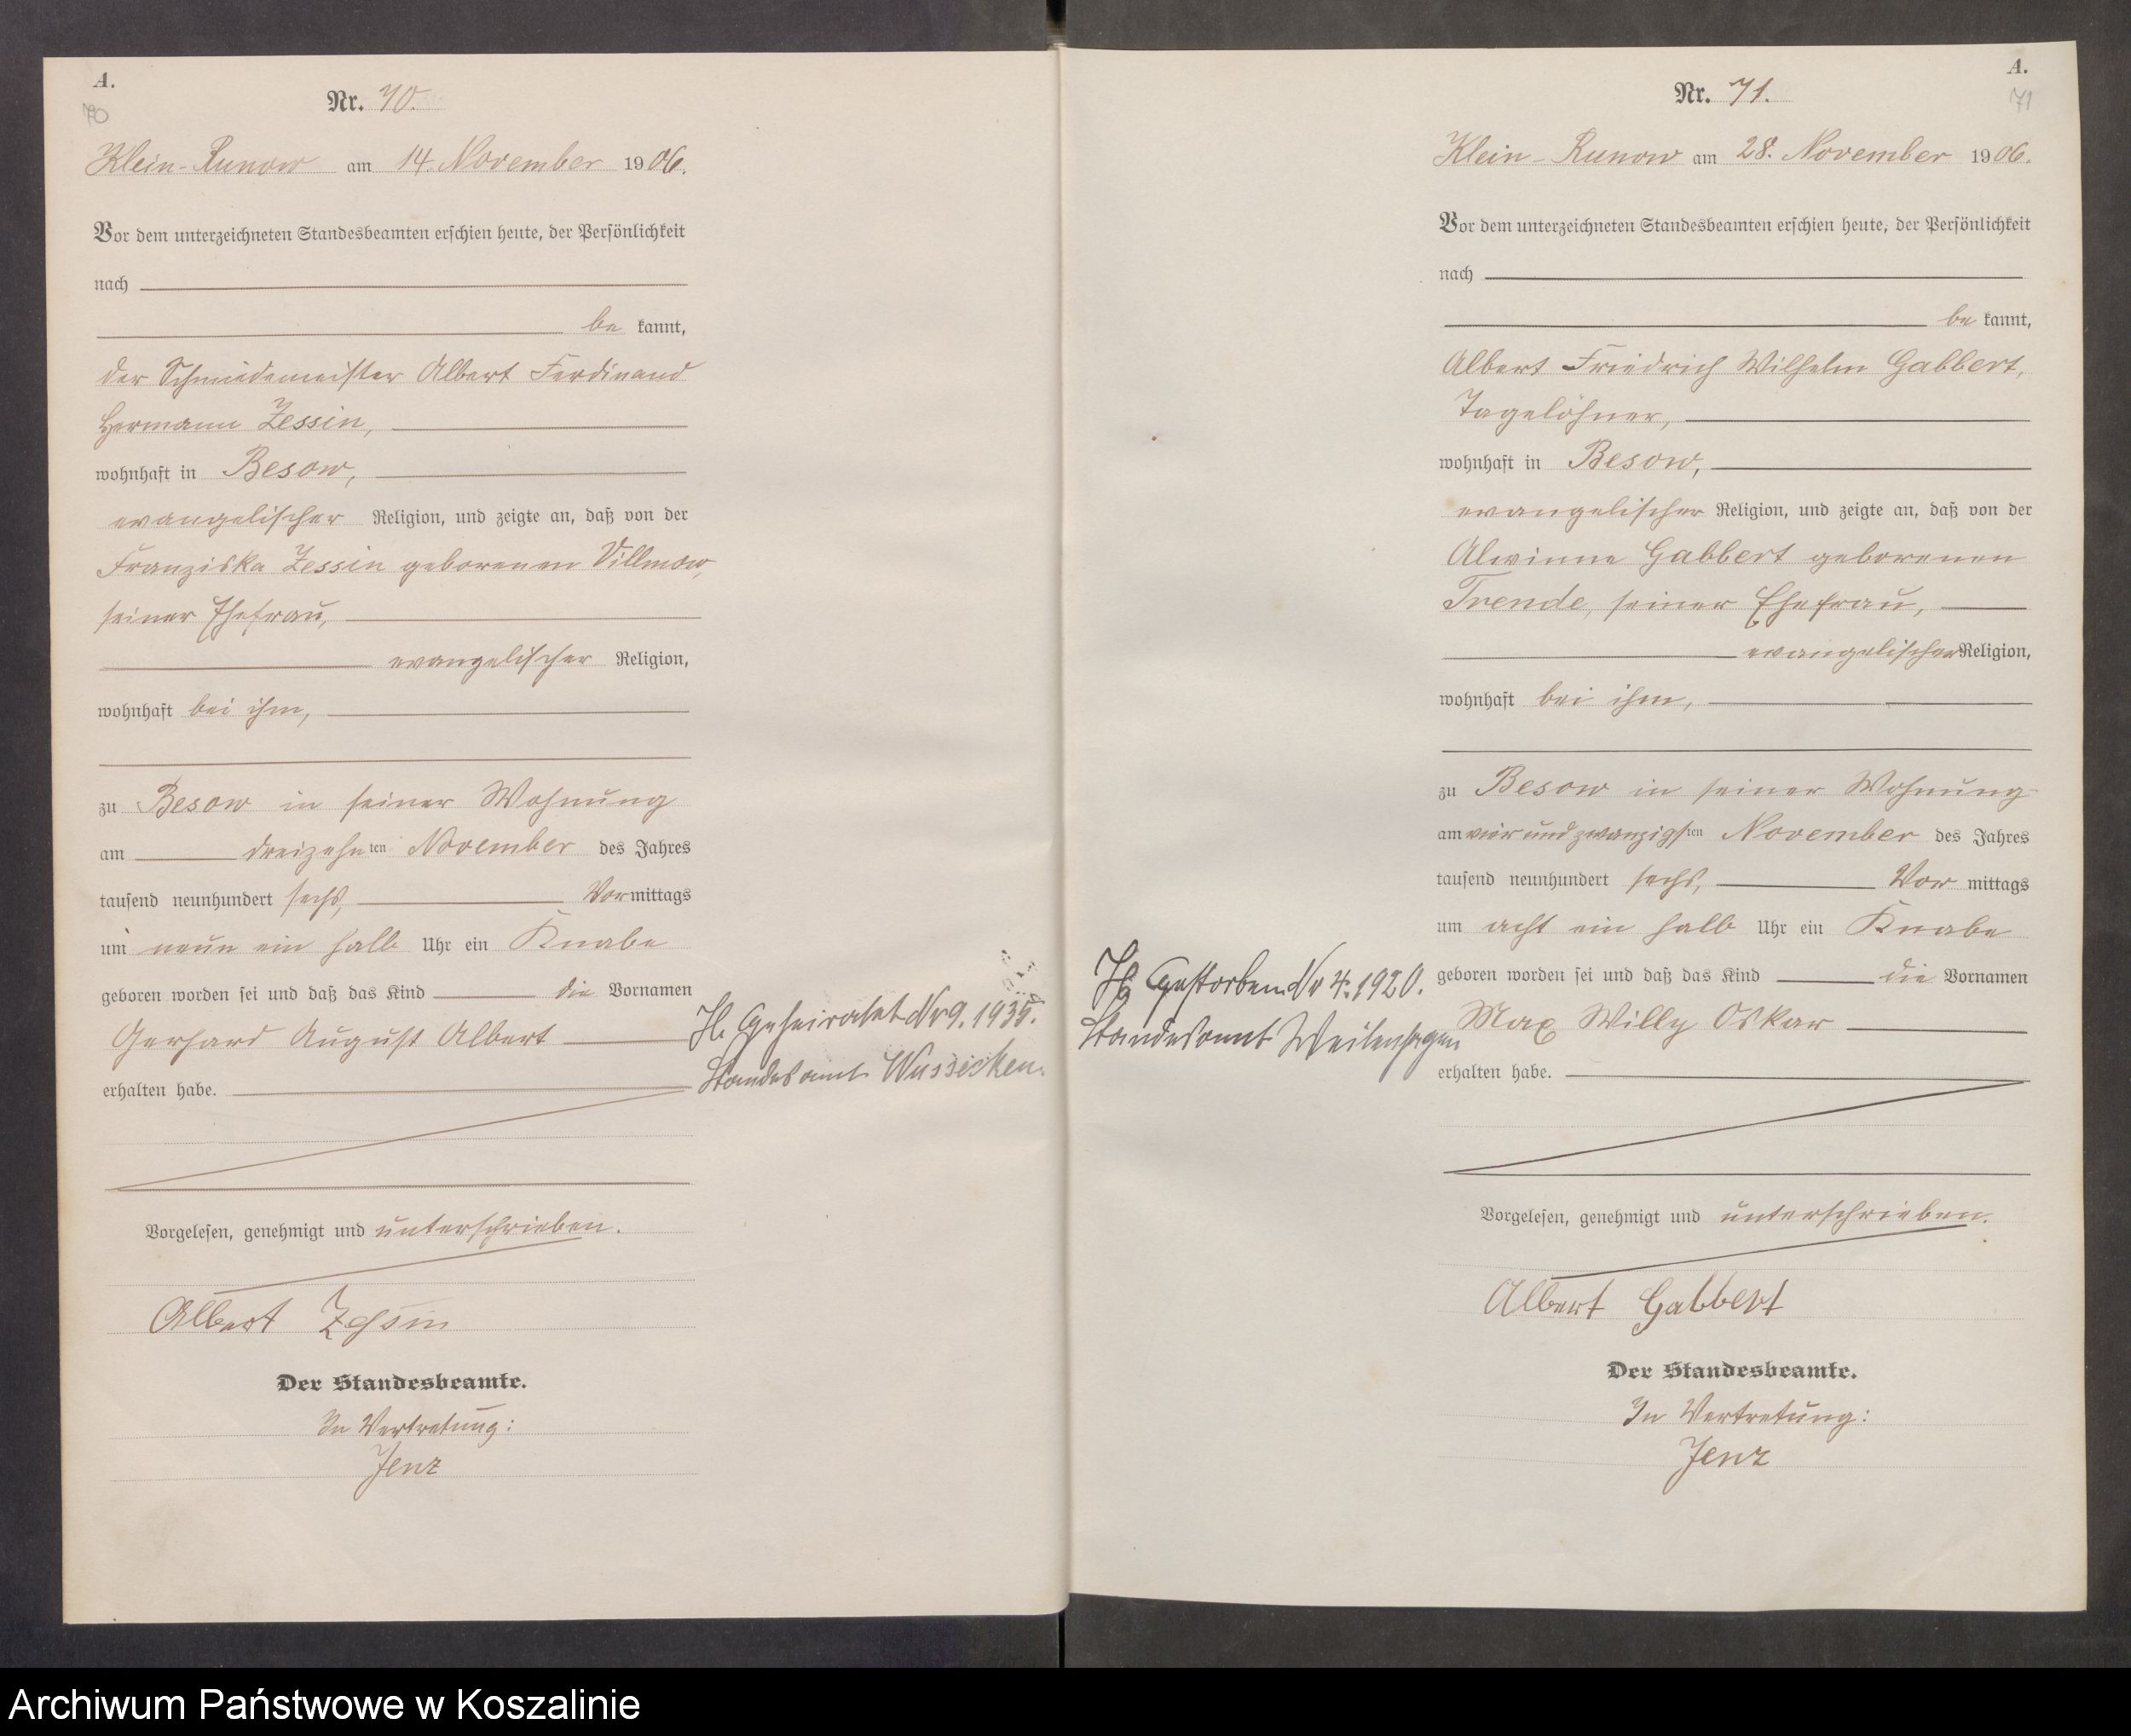 A.
70
Nr. 70.
Klein-Runow am 14. November 1906.
Vor dem unterzeichneten Standesbeamten erschien heute, der Persönlichkeit
nach
be kannt,
der Schmiedemeister Albert Ferdinand
Hermann Zessin,
wohnhaft in Besow,
evangelischer Religion, und zeigte an, daß von der
Franziska Zessin geborenen Villmow,
seiner Ehefrau,
evangelischer Religion,
wohnhaft bei ihm,
zu Besow in seiner Wohnung
am dreizehnten November des Jahres
tausend neunhundert sechs, Vormittags
um neun ein halb Uhr ein Knabe
geboren worden sei und daß das Kind die Vornamen
Gerhard August Albert
erhalten habe.
H. Geheiratet Nr 9. 1935.
Standesamt Wussecken.
Vorgelesen, genehmigt und unterschrieben.
Albert Zessin
Der Standesbeamte.
In Vertretung:
Jenz
A.
71
Nr. 71.
Klein-Runow am 28. November 1906.
Vor dem unterzeichneten Standesbeamten erschien heute, der Persönlichkeit
nach
be kannt,
Albert Friedrich Wilhelm Gabbert,
Tagelöhner,
wohnhaft in Besow,
evangelischer Religion, und zeigte an, daß von der
Alwinne Gabbert geborenen
Trende, seiner Ehefrau,
evangelischer Religion,
wohnhaft bei ihm,
zu Besow in seiner Wohnung
am vierundzwanzigsten November des Jahres
tausend neunhundert sechs, Vor mittags
um acht ein halb Uhr ein Knabe
geboren worden sei und daß das Kind die Vornamen
Max Willy Oskar
erhalten habe.
Gestorben Nr 4. 1920.
Standesamt Weitenhagen
Vorgelesen, genehmigt und unterschrieben.
Albert Gabbert
Der Standesbeamte.
In Vertretung:
Jenz
Archiwum Państwowe w Koszalinie